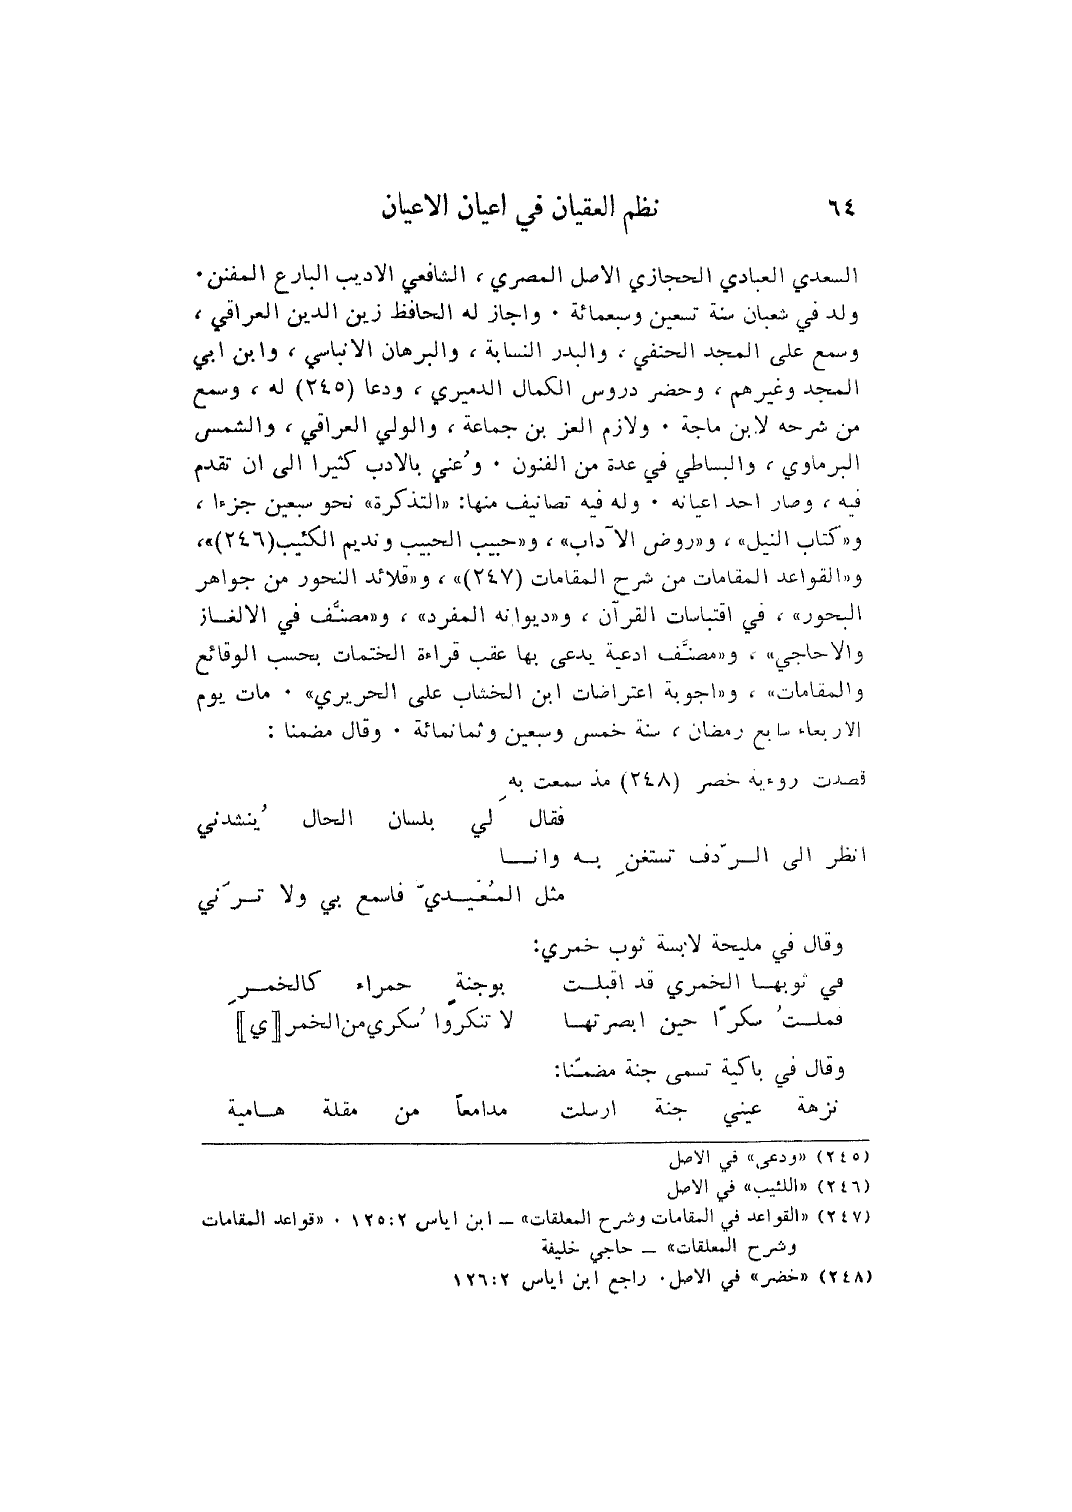 ٦٤ نظم العقيان في اعيان الاعيان
السعدي العبادي الحجازي الاصل المصري ، الشافعي الاديب البارع المفنن ٠
ولد في شعبان سنة تسعين وسبعمائة ٠ واجاز له الحافظ زين الدين العراقي ،
وسمع على المجد الحنفي ، والبدر النسابة ، والبرهان الانباسي ، وابن ابي
المجد وغيرهم ، وحضر دروس الكمال الدميري ، ودعا (٢٤٥) له ، وسمع
من شرحه لابن ماجة ٠ ولازم العز بن جماعة ، والولي العراقي ، والشمس
البرماوي ، والبساطي في عدة من الفنون ٠ وعُني بالادب كثيرا الى ان تقدم
فيه ، وصار احد اعيانه ٠ وله فيه تصانيف منها: «التذكرة» نحو سبعين جزءا ،
و«كتاب النيل» ، و«روض الآداب» ، و«حبيب الحبيب ونديم الكئيب(٢٤٦)»،
و«القواعد المقامات من شرح المقامات (٢٤٧)» ، و«قلائد النحور من جواهر
البحور» ، في اقتباسات القرآن ، و«ديوانه المفرد» ، و«مصنَّف في الالغـاز
والاحاجي» ، و«مصنَّف ادعية يدعى بها عقب قراءة الختمات بحسب الوقائع
والمقامات» ، و«اجوبة اعتراضات ابن الخشاب على الحريري» ٠ مات يوم
الاربعاء سابع رمضان ، سنة خمس وسبعين وثمانمائة ٠ وقال مضمنا :
قصدت روءية خصر (٢٤٨) مذ سمعت بهِ
فقال لي بلسان الحال يُنشدني
انظر الى الـرّدف تستغنِ بـه وانــا
مثل المُعَيـديّ فاسمع بي ولا تـرَني
وقال في مليحة لابسة ثوب خمري:
في ثوبهـا الخمري قد اقبلـت بوجنةٍ حمراء كالخمـرِ
فملـتُ سكرًا حين ابصرتهـا لا تنكروا سُكري من الخمر[ي]
وقال في باكية تسمى جنة مضمّنا:
نزهة عيني جنة ارسلت مدامعاً من مقلة هـامية
(٢٤٥) «ودعى» في الاصل
(٢٤٦) «اللئيب» في الاصل
(٢٤٧) «القواعد في المقامات وشرح المعلقات» ــ ابن اياس ١٢٥:٢ ٠ «قواعد المقامات
وشرح المعلقات» ــ حاجي خليفة
(٢٤٨) «خضر» في الاصل٠ راجع ابن اياس ١٢٦:٢